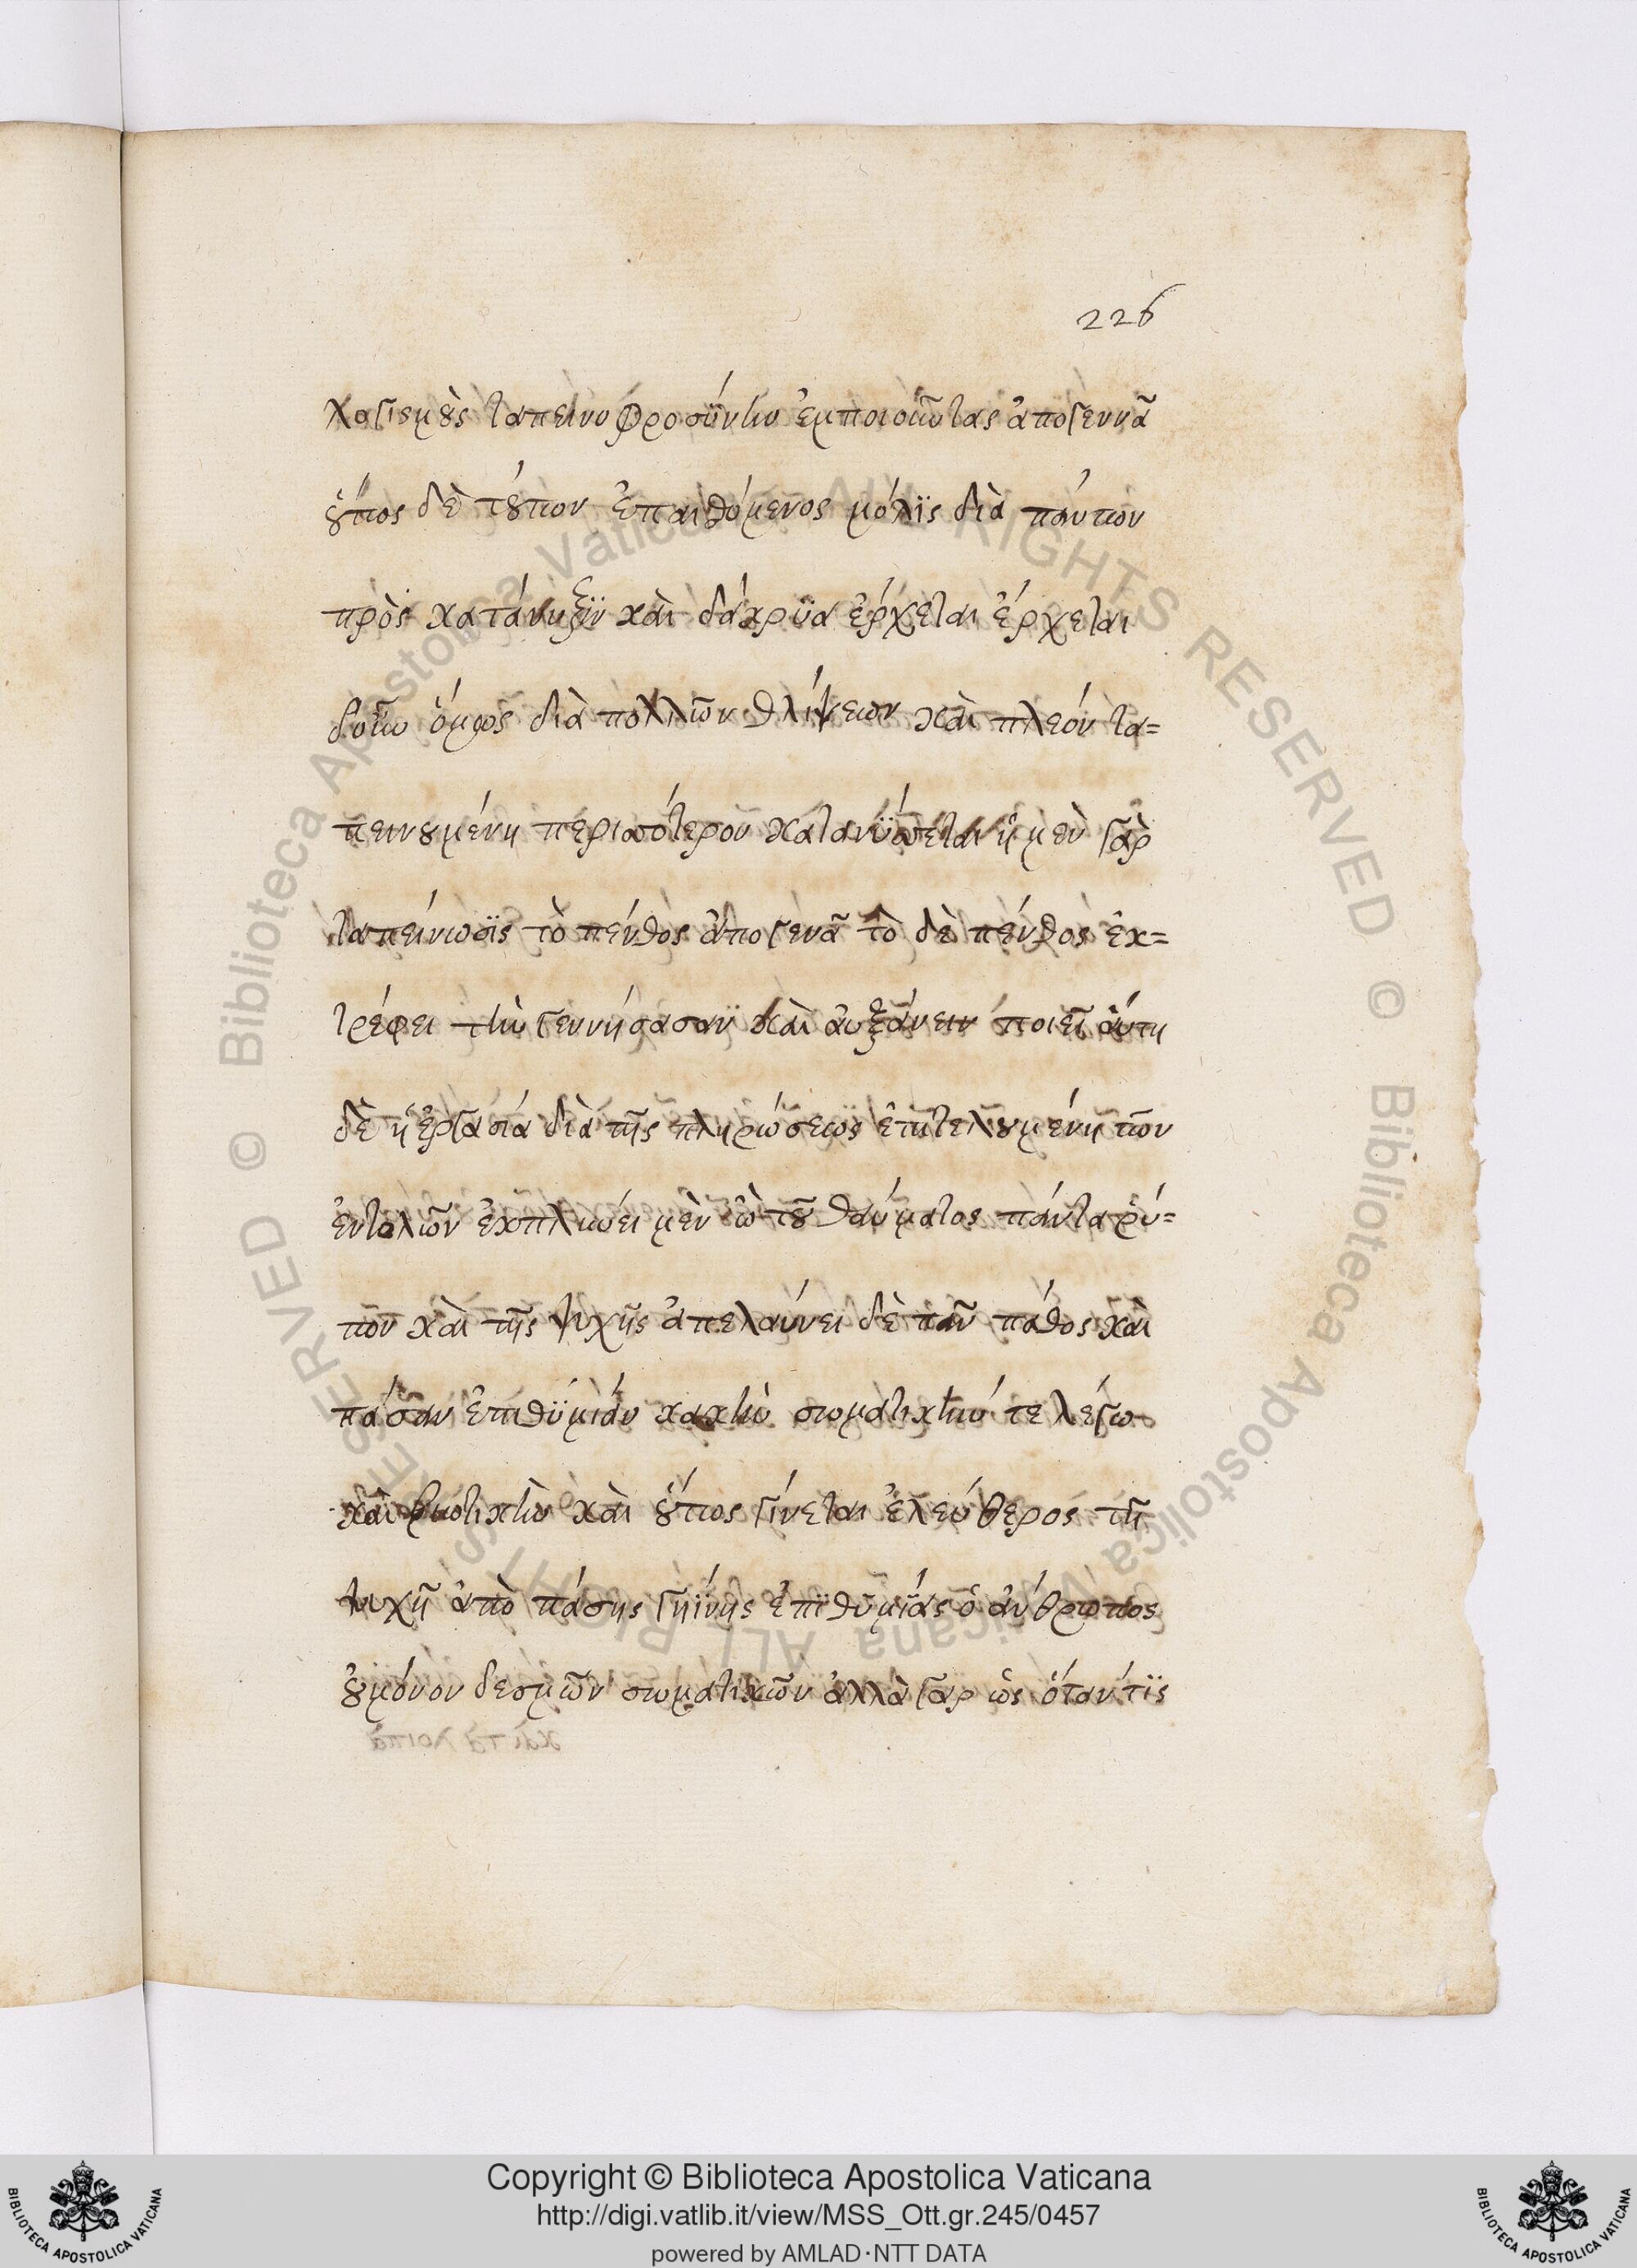 226
λογισμοὺς ταπεινοφροσύνην ἐμποιοῦντας ἀπογεννᾶ
οὕτος δὲ τούτων ἐπαισθόμενος μόλϊς διὰ τούτων
πρὸς κατάνυξϊν καὶ δάκρϋα ἔρχεται ἔρχεται
ὅμως διὰ πολλῶν θλίψεων καὶ πλεόν τα=
πεινουμένη περισσότερον κατανϋσσεται ἡ μὲν γὰρ
ταπείνωσϊς τὸ πένθος ἀπογενᾶ τὸ δὲ πένθος ἐκ=
τρέφει τὴν γεννήσασαν καὶ ἀυξάνειν ποιεῖ ἀύτη
δὲ ἡ ἐργασία διὰ τῆς πληρώσεως ἐπιτελουμένη τῶν
ἐντολῶν ἐκπλύνει μὲν ὢ τοῦ θαύματος πάντα ρύ=
πον καὶ τῆς ψυχῆς ἀπελαύνει δὲ πᾶν πάθος καὶ
πάσαν ἐπιθϋμιάν κακὴν σωματικήν τε λέγω
καὶ βιωτικὴν καὶ οὕτως γίνεται ἐλεύθερος τῆ
ψυχῆ ἀπὸ πάσης γηίνης ἐπϊθϋμίας ὁ ἄνθρωπος
οὐ μόνον δεσμῶν σωματικῶν ἀλλὰ γὰρ ὡς ὅταν τϊς
Copyright © Biblioteca Apostolica Vaticana
http://digi.vatlib.it/view/MSS_Ott.gr.245/0457
powered by AMLAD·NTT DATA
BIBLIOTECA APOSTOLICA VATICANA
BIBLIOTECA APOSTOLICA VATICANA
© Biblioteca Apostolica Vaticana ALL RIGHTS RESERVED
© Biblioteca Apostolica Vaticana ALL RIGHTS RESERVED